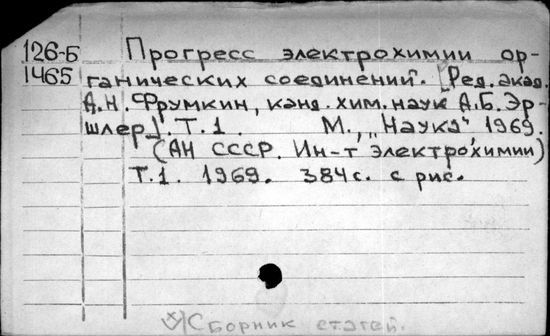 126-Б Прогресс электрохимии ор-
1465 ганических соединений. [Ред. акад.
А.Н. Фрумкин, канд. хим. наук А.Б. Эр-
шлер]. Т.1. М., „Наука“, 1969.
(АН СССР. Ин-т электрохимии)
Т.1. 1969. 384с. с рис.
Сборник статей.